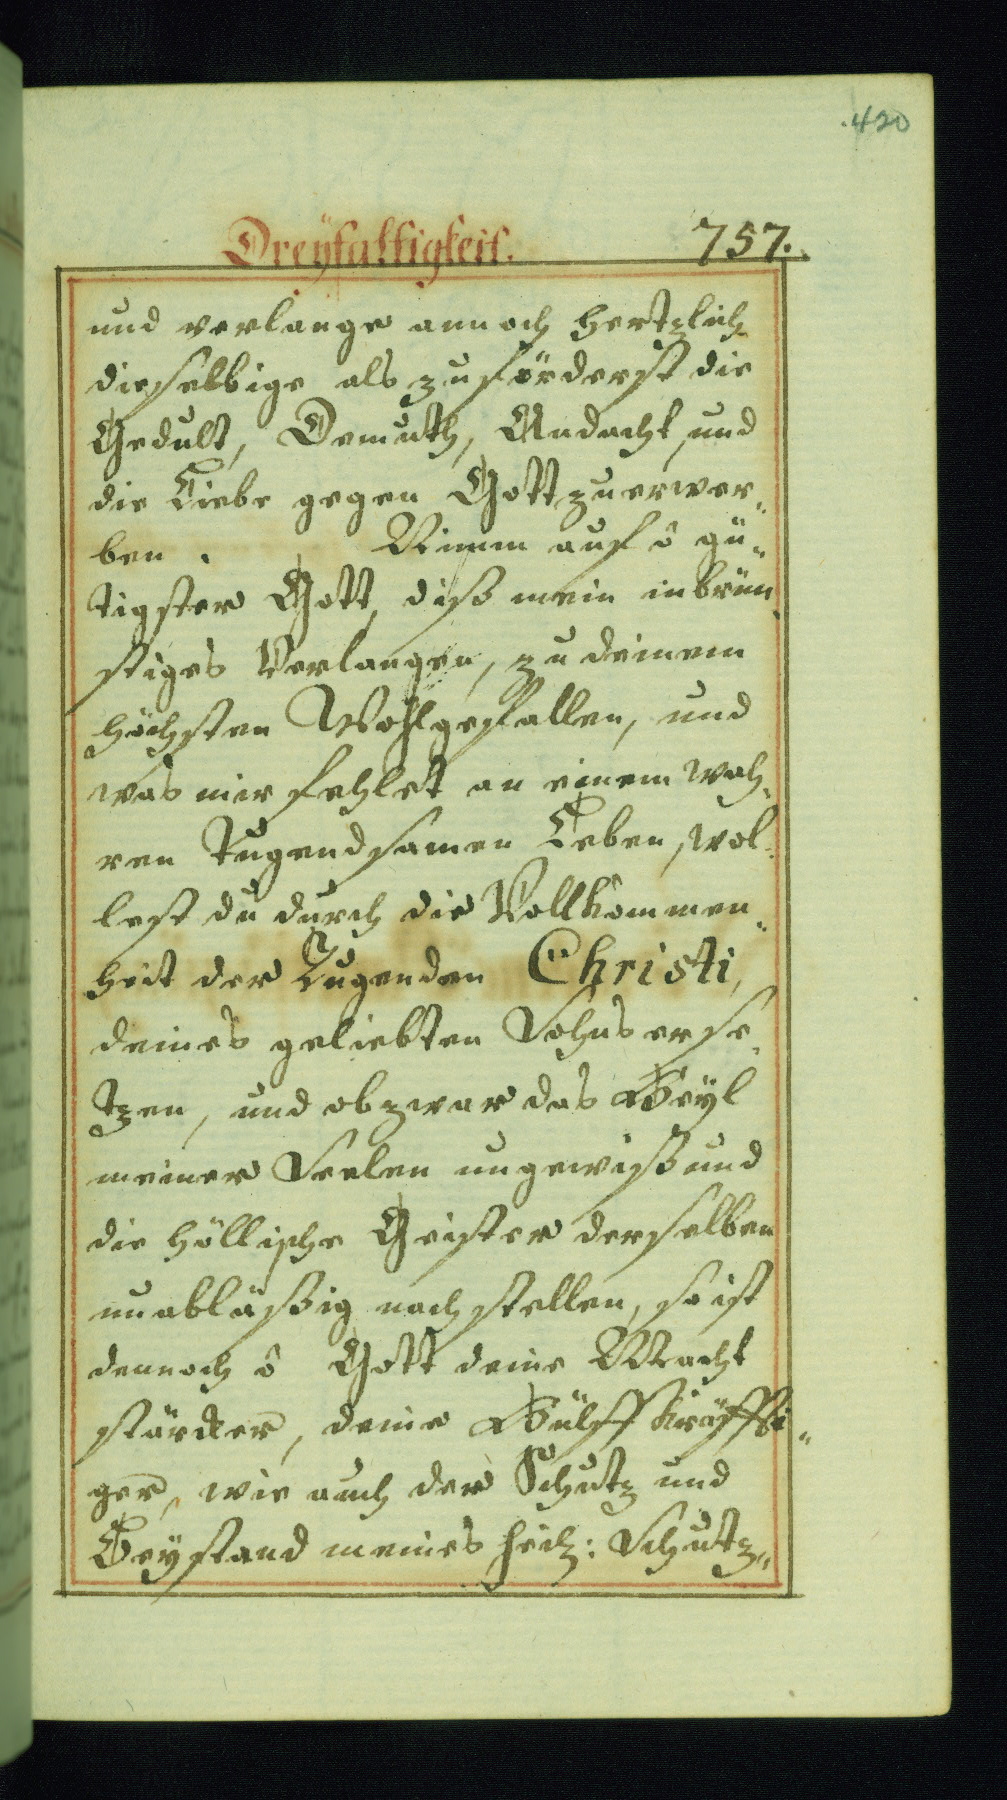 420
Dreyfaltigkeit. 757.
und verlange annoch hertzlich
dieselbige als zuförderst die
Gedult, Demuth, Andacht, und
die Liebe gegen Gott zuerwer„
ben. Nimm auf ô gü„
tigster Gott, diß mein inbrün„
stiges Verlangen, zu deinem
höchsten Wohlgefallen, und
was mir fehlet an einem wah„
ren Tugendsamen Leben, wol„
lest du durch die Vollkommen„
heit der Tugenden Christi,
deines geliebten Sohns erse„
tzen, und obzwar das Heyl
meiner Seelen ungewiß und
die höllische Geister derselben
unabläßig nachstellen, so ist
dennoch ô Gott deine Macht
stärcker, deine Hülff kräffti„
ger, wie auch der Schutz und
Beystand meines heil: Schutz„